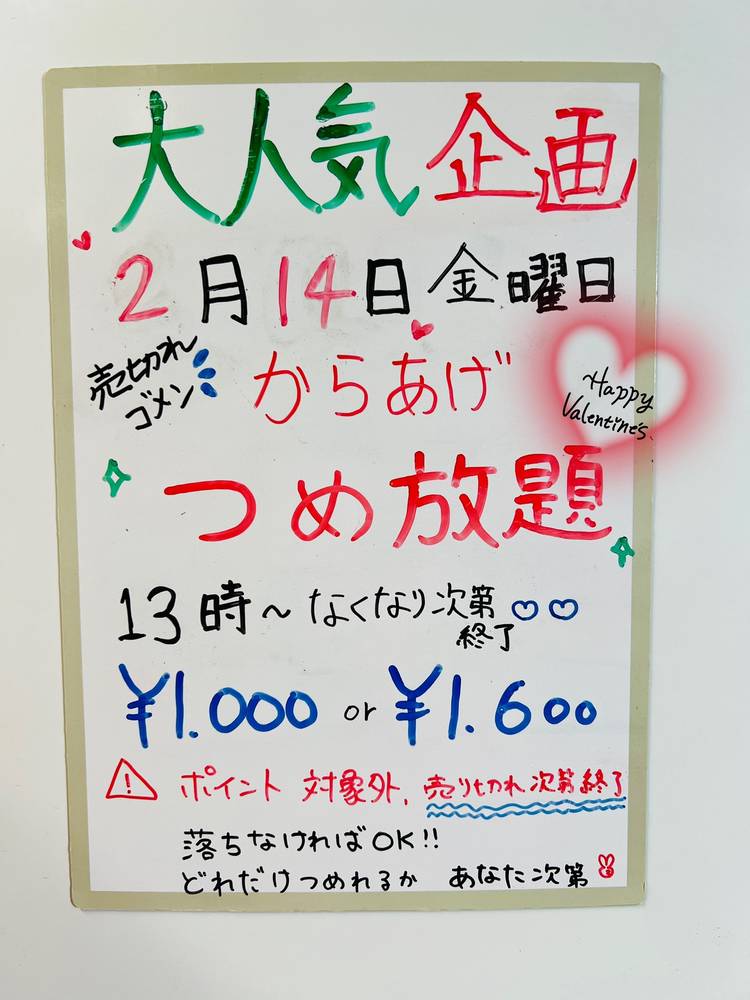 大人気 企画
2月14日 金曜日
売切れ
ゴメン
からあげ
Happy
Valentine's
つめ放題
13時～ なくなり次第
終了
¥1.000 or ¥1.600
ポイント 対象外、売り切れ次第終了
落ちなければOK!!
どれだけつめれるか あなた次第